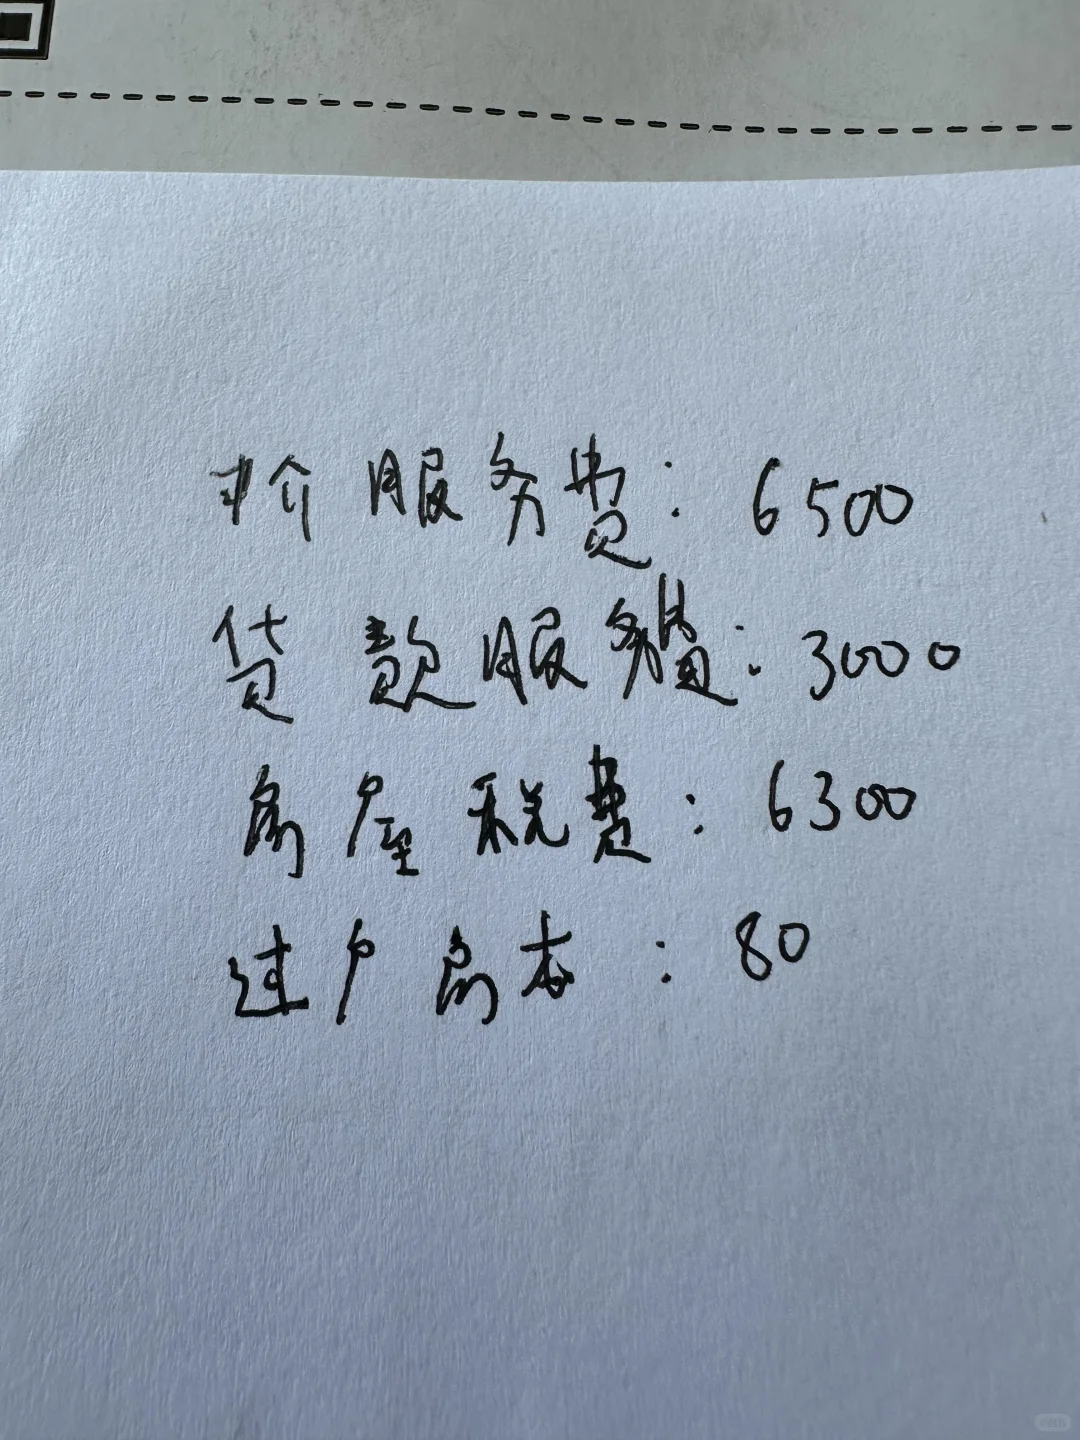 中介服务费：6500
贷款服务费：3000
房屋税费：6300
过户房本：80